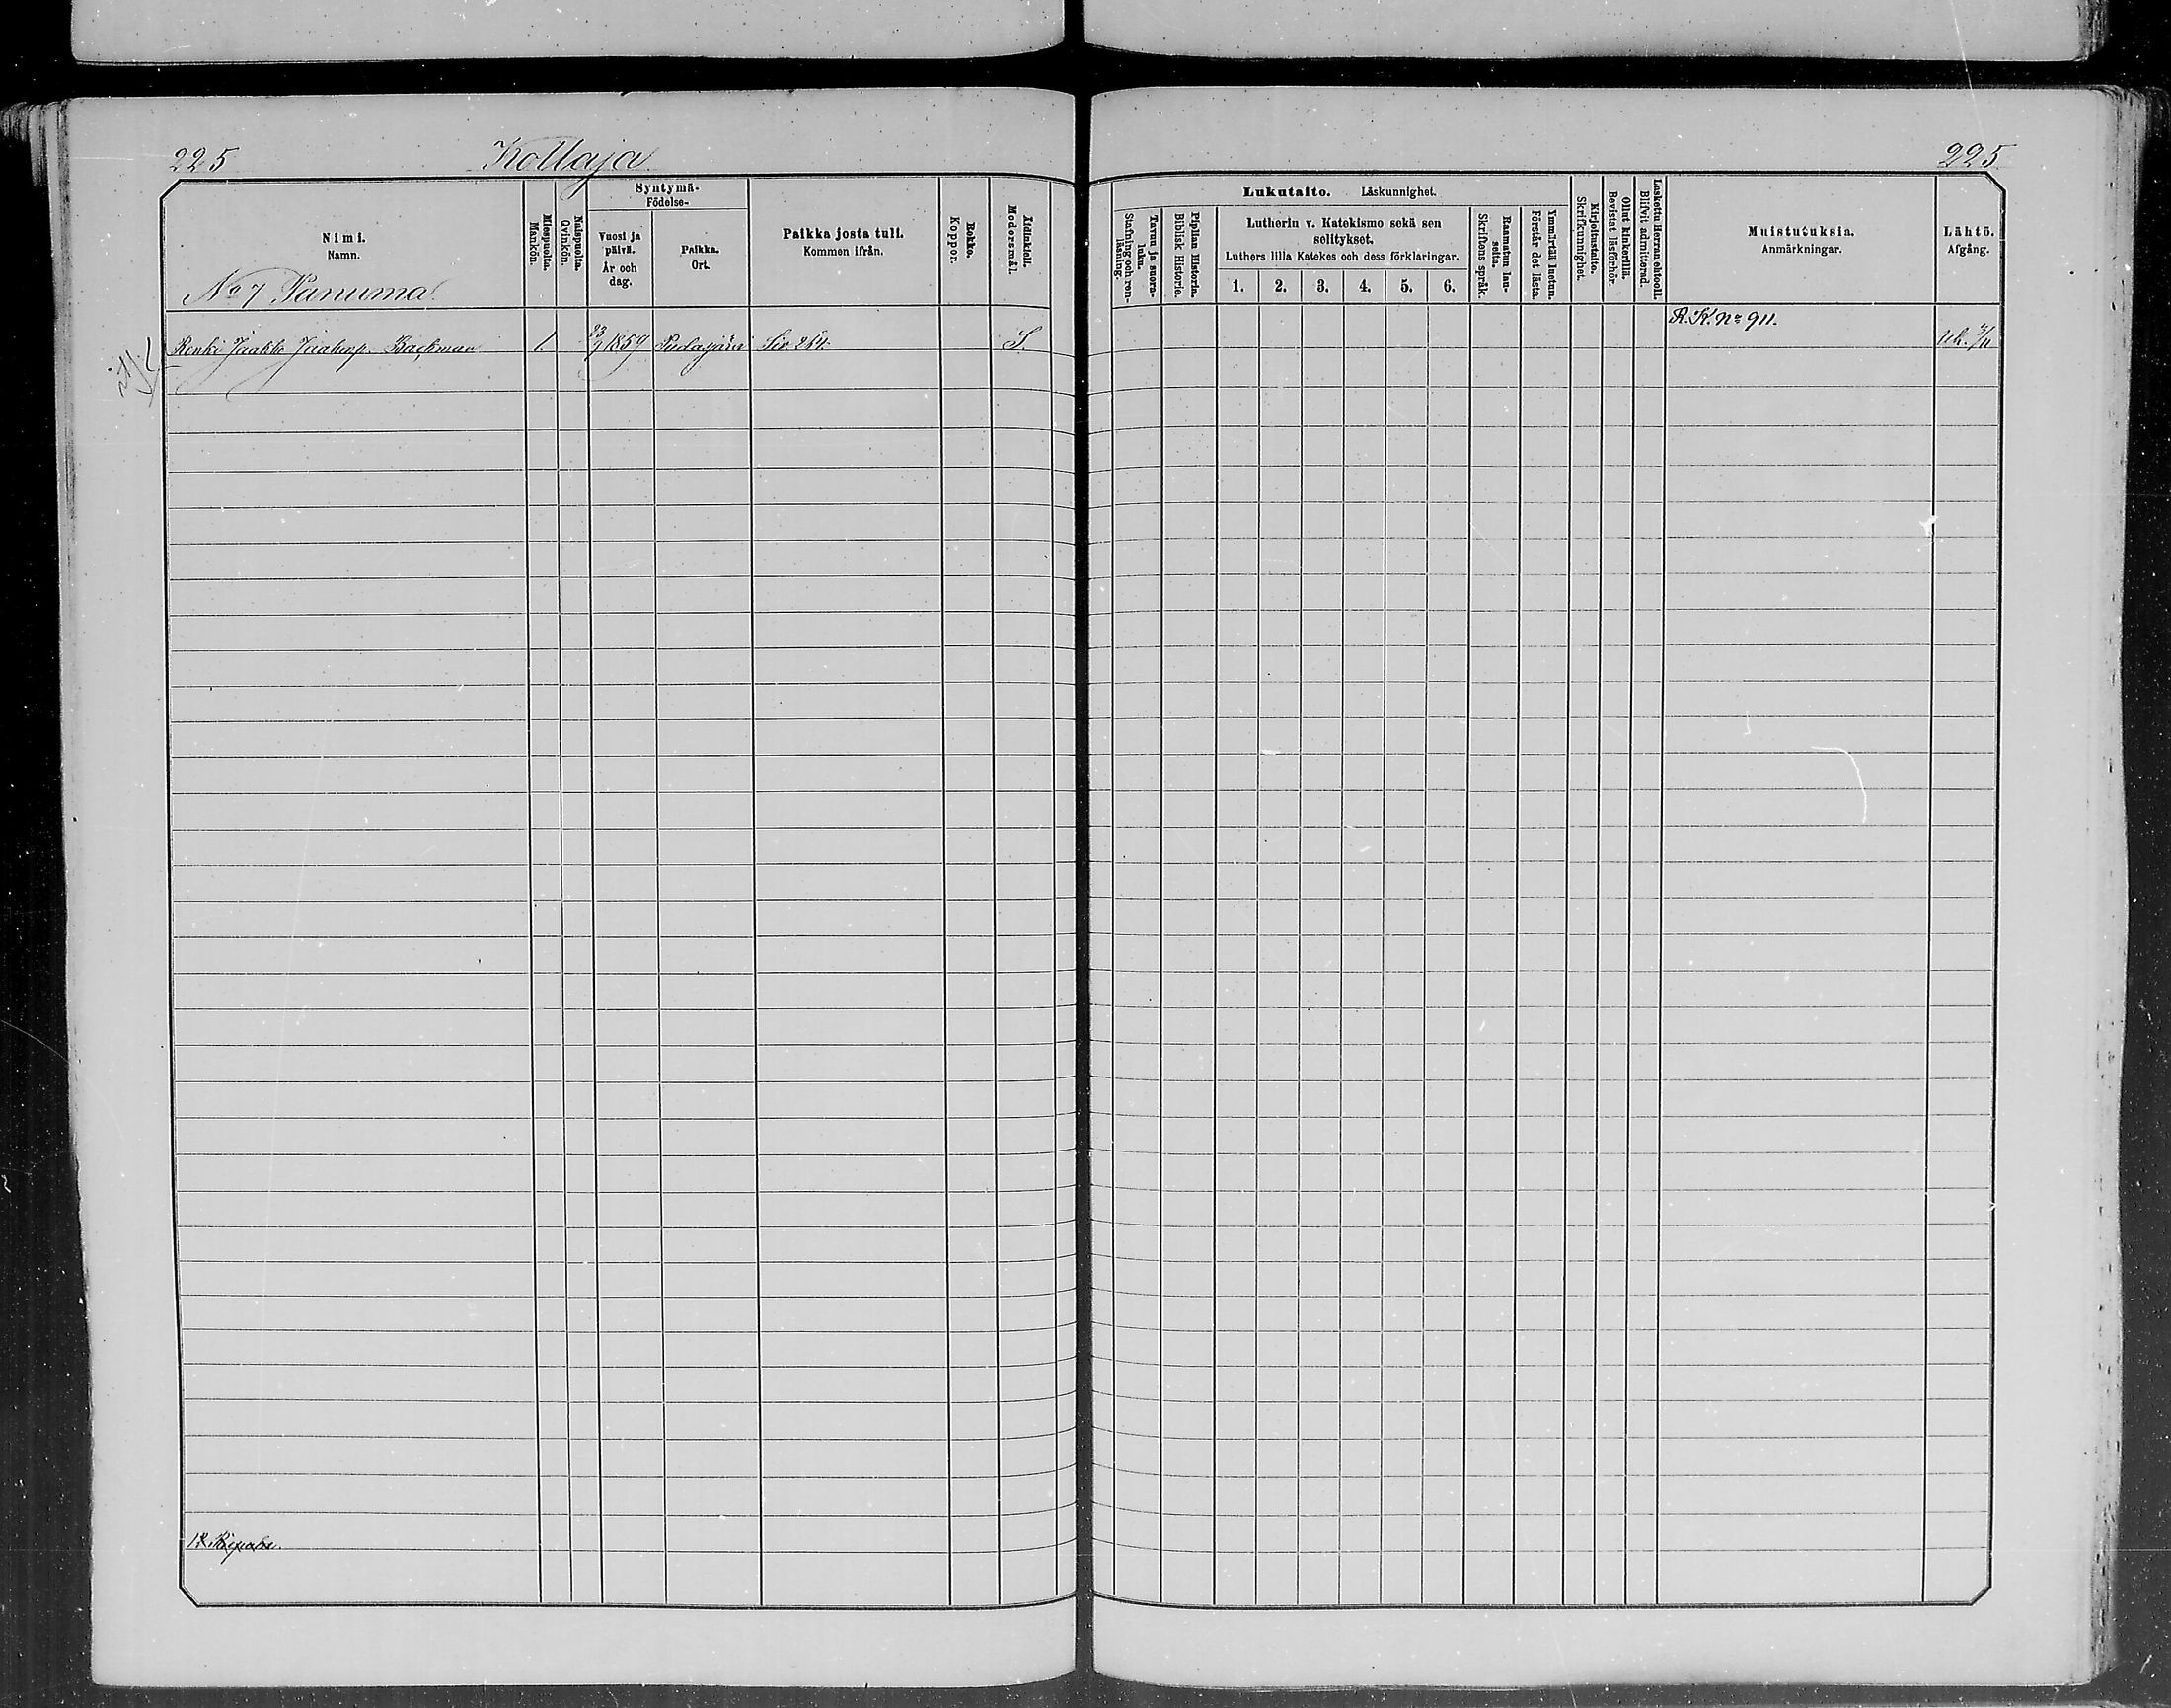 225 Kollaja 225
Nimi.
Namn.
No 7 Panuma
Miespuolta.
Mankön.
Naispuolta.
Qvinkön.
Syntymä-
Födelse-
Vuosi ja
päivä.
År och
dag.
Paikka.
Ort.
Paikka josta tuli.
Kommen ifrån.
Rokko.
Koppor.
Äidinkieli.
Modersmål.
Lukutaito. Läskunnighet.
Tavuu ja suora-
luku.
Stafning och ren-
läsning.
Piplian Historia.
Biblisk Historie.
Lutherin v. Katekismo sekä sen
selitykset.
Luthers lilla Katekes och dess förklaringar.
1. 2. 3. 4. 5. 6.
Raamatun lau-
seita.
Skriftens språk.
Ymmärtää luetun.
Förstår det lästa.
Kirjoitustaito.
Skrifkunnighet.
Ollut kinkerillä.
Bevistat läsförhör.
Laskettu Herran ehtooll.
Blifvit admitterad.
Muistutuksia.
Anmärkningar.
Lähtö.
Afgång.
R. K. No 911.
Renki Jaakko Jaakonp. Backman 1 23/9 1859 Pudasjärvi Siv. 264. S.